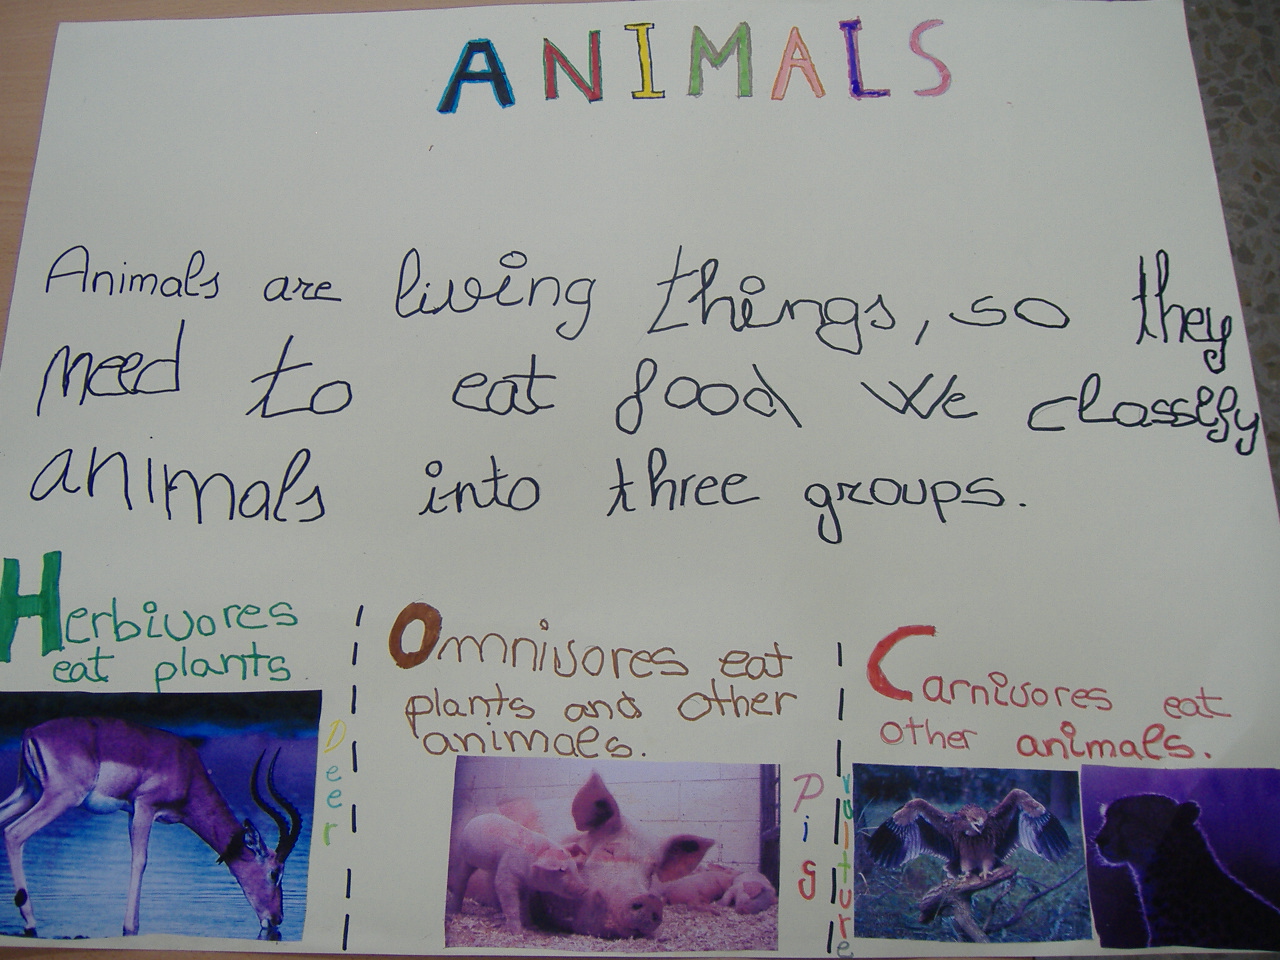 ANIMALS
Animals are living things, so they
need to eat food We classify
animals into three groups.
Herbivores
eat plants
Deer
Omnivores eat
plants and other
animals.
Pig
Carnivores eat
other animals.
vulture